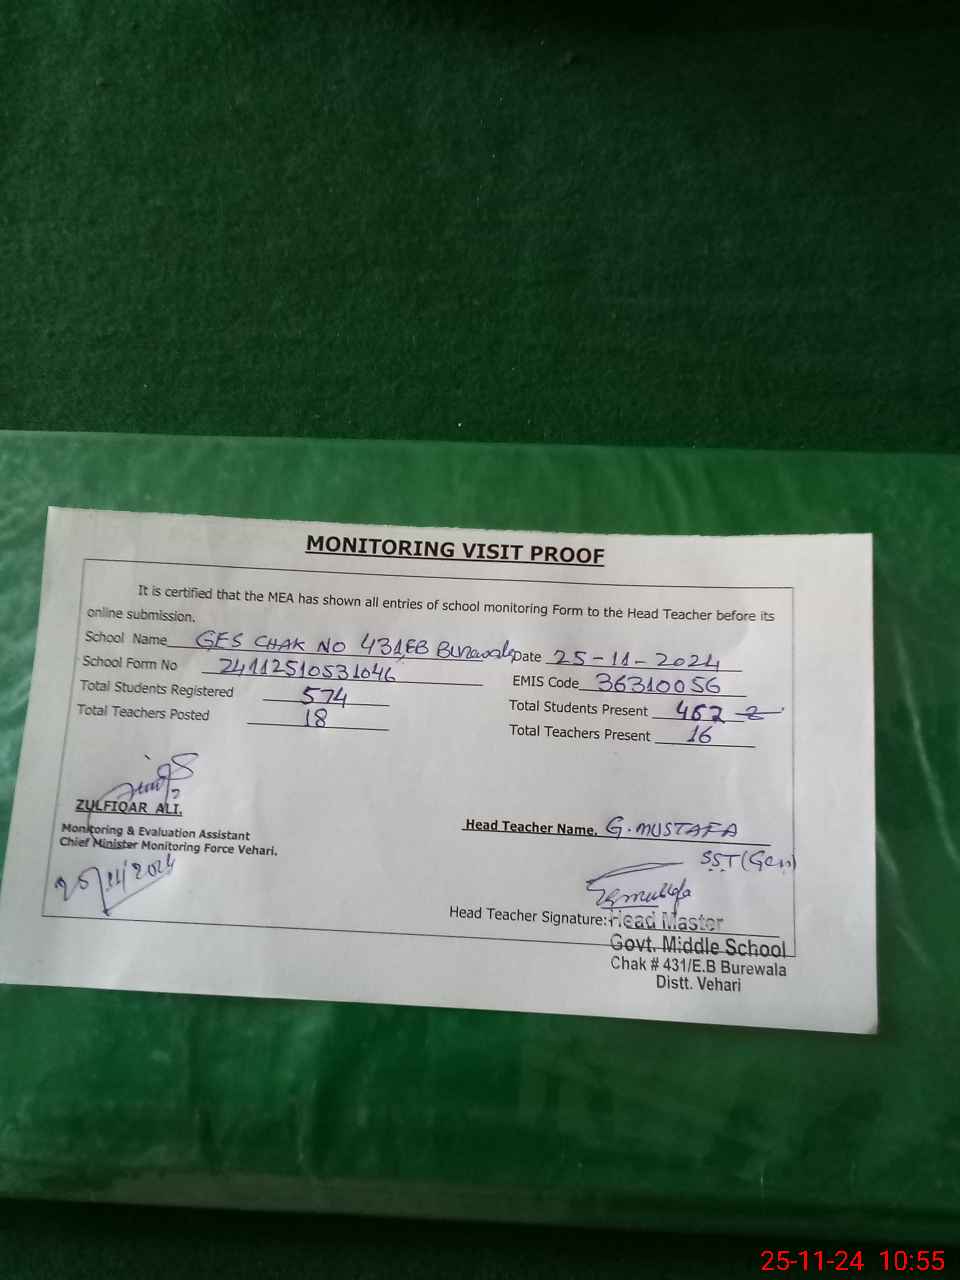 MONITORING VISIT PROOF
It is certified that the MEA has shown all entries of school monitoring Form to the Head Teacher before its
online submission.
School Name GES CHAK NO 431,EB Burewala Date 25-11-2024
School Form No 24112510531046 EMIS Code 36310056
Total Students Registered 574 Total Students Present 462
Total Teachers Posted 18 Total Teachers Present 16
ZULFIQAR ALI.
Monitoring & Evaluation Assistant
Chief Minister Monitoring Force Vehari.
25/11/2024
Head Teacher Name. G. MUSTAFA
SST (Gen)
Head Teacher Signature:
Head Master
Govt. Middle School
Chak # 431/E.B Burewala
Distt. Vehari
25-11-24 10:55